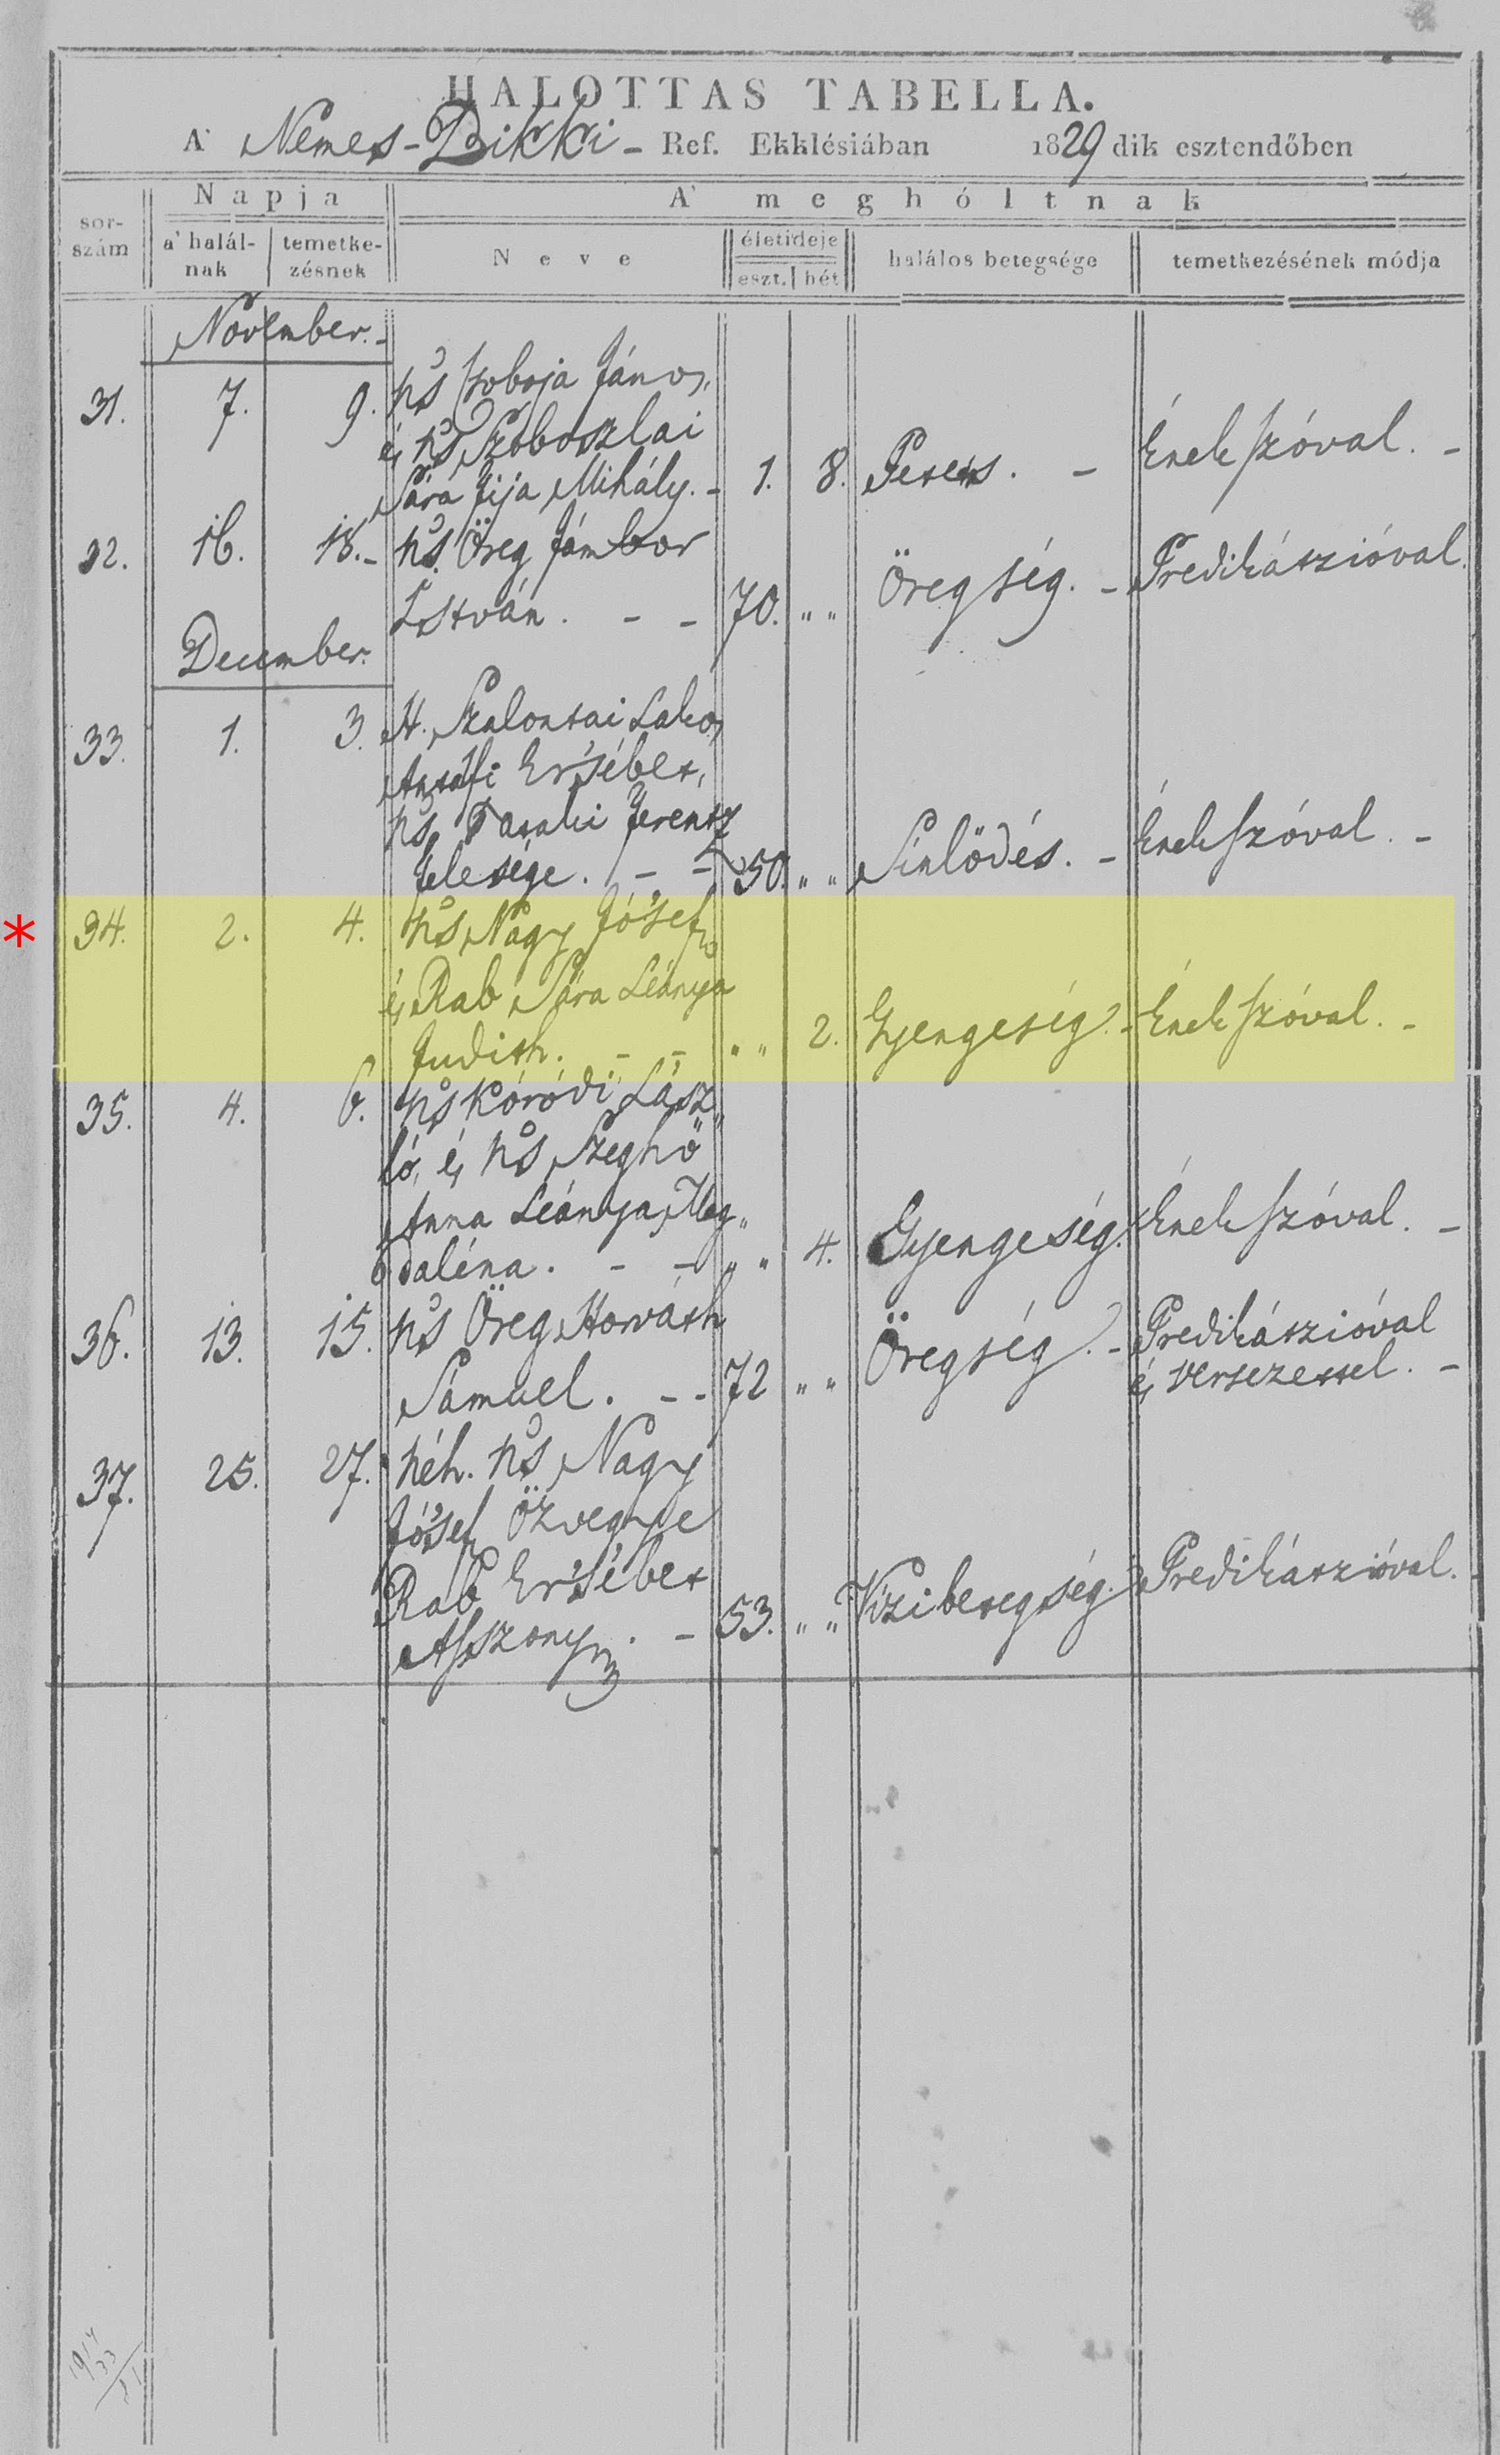 HALOTTAS TABELLA.
A' Nemes-Bikki - Ref. Ekklésiában 1829 dik esztendőben
Napja A' meghóltnak
sor-
szám
a' halál-
nak
temetke-
zésnek
Neve
életideje
eszt. hét
halálos betegsége
temetkezésének módja
November. -
31. 7. 9. ns János,
és ns Szoboszlai
Sára fija Mihály. - 1. 8. - Ének szóval. -
32. 16. 18. - ns. Öreg Jámbor
István. - - 70. „ „ Öregség. - Predikátzióval.
December.
33. 1. 3. H. Szalontai Lakos,
Ersébet,
ns Ferentz
felesége. - - 50. „ „ Sinlődés. - Ének szóval. -
* 34. 2. 4. ns Nagy Jósef,
és Rab Sára Leánya
Judith. - - „ „ 2. Gyengeség. - Ének szóval. -
35. 4. 6. ns Kóródi Lász„
ló, és ns Szeghő
Anna Leánya, Mag„
daléna. - - „ „ 4. Gyengeség. Ének szóval. -
36. 13. 15. ns Öreg Horváth
Sámuel. - - 72 „ „ Öregség. - Predikátzióval
és versezettel. -
37. 25. 27. néh. ns Nagy
Jósef özvegye
Rab Ersébet
Aszszony. - 53. „ „ Vízi betegség. Predikátzióval.